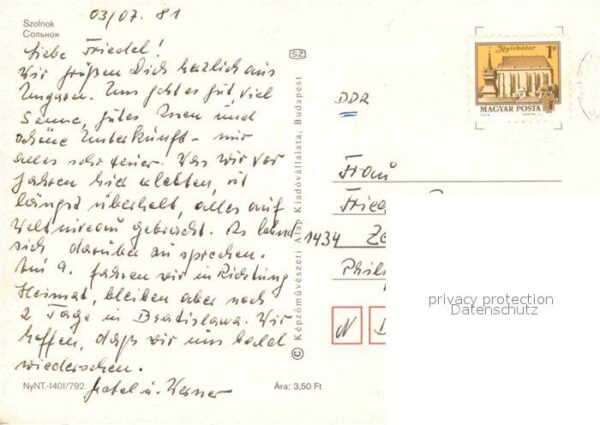 03/07. 81
Szolnok
Сольнок
Liebe Friedel!
Wir grüßen Dich herzlich aus
Ungarn. Uns geht es gut viel
Sonne, gutes Essen und
schöne Unterkunft - nur
alles sehr teuer. Was wir vor
Jahren hier erlebten, ist
längst überholt, alles auf
Weltniveau gebracht. Es lohnt
sich darüber zu sprechen.
Am 9. fahren wir in Richtung
Heimat, bleiben aber noch
2 Tage in Bratislawa. Wir
hoffen, daß wir uns bald
wiedersehen.
u. Werner
NyNT.-1401/792.
Ára: 3,50 Ft
SZ
© Képzőművészeti Alap Kiadóvállalata, Budapest
Nyírbátor
1Ft
MAGYAR POSTA
DDR
Frau
Fried
1434
Ze
Phili
N
privacy protection
Datenschutz